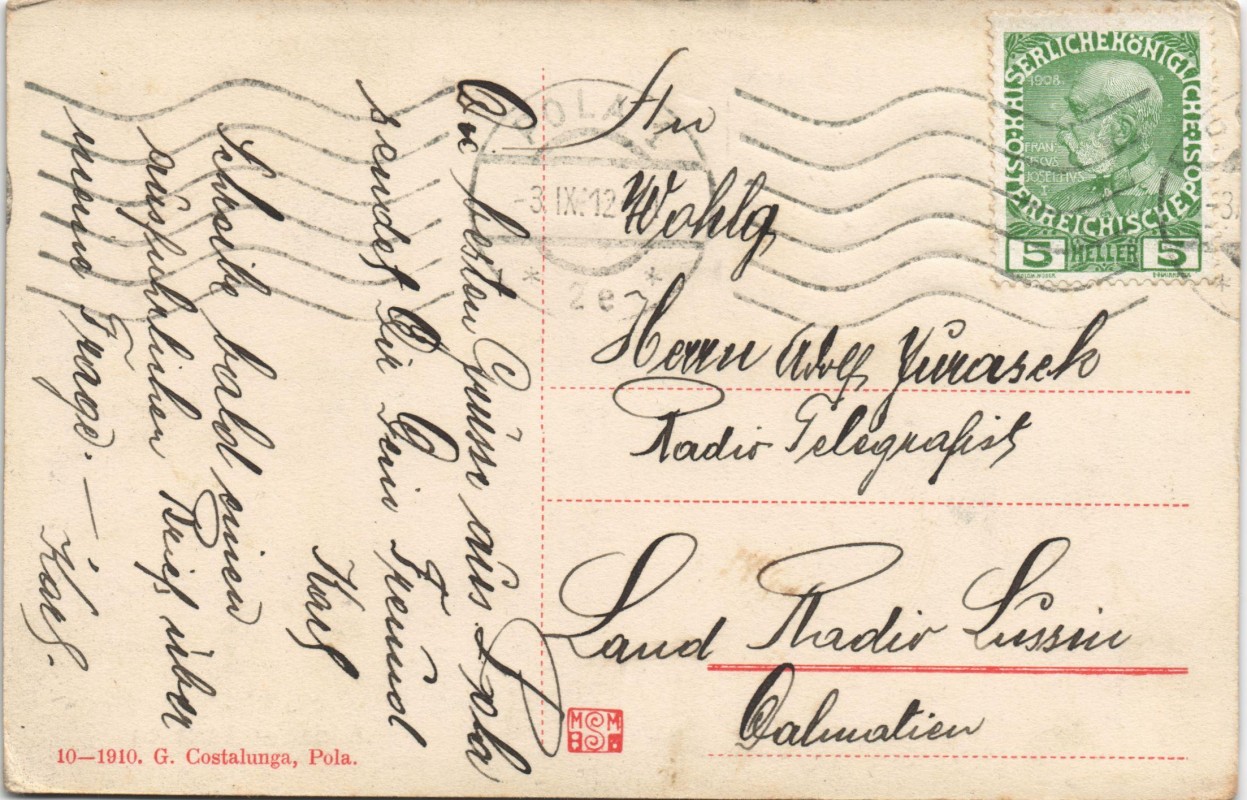 Die besten Grüsse aus Pola
sendet Dir Dein Freund
Karl
Schreibe bald einen
ausführlichen Brief über
meine Frage. —
Karl.
10—1910. G. Costalunga, Pola.
MSM
POLA 1
-3 IX 12
* 2e *
An
Wohlg
Herrn Adolf Jurasek
Radio Telegrafist
Land Radio Lussin
Dalmatien
KAISERLICHE KÖNIGLICHE ÖSTERREICHISCHE POST
1908
FRAN
CISCVS
JOSEPHVS
I
5 HELLER 5